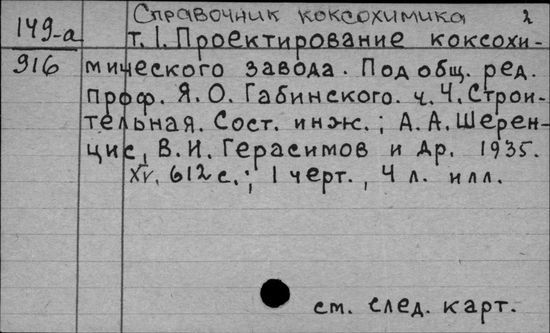 Справочник коксохимика 2
149-а т. 1. Проектирование коксохи-
916 мического завода. Под общ. ред.
проф. Я. О. Габинского. ч. 4. Строи-
тельная. Сост. инж.; А. А. Шерен-
цис, В. И. Герасимов и др. 1935.
XV, 612 с.; 1 черт., 4 л. илл.
см. след. карт.